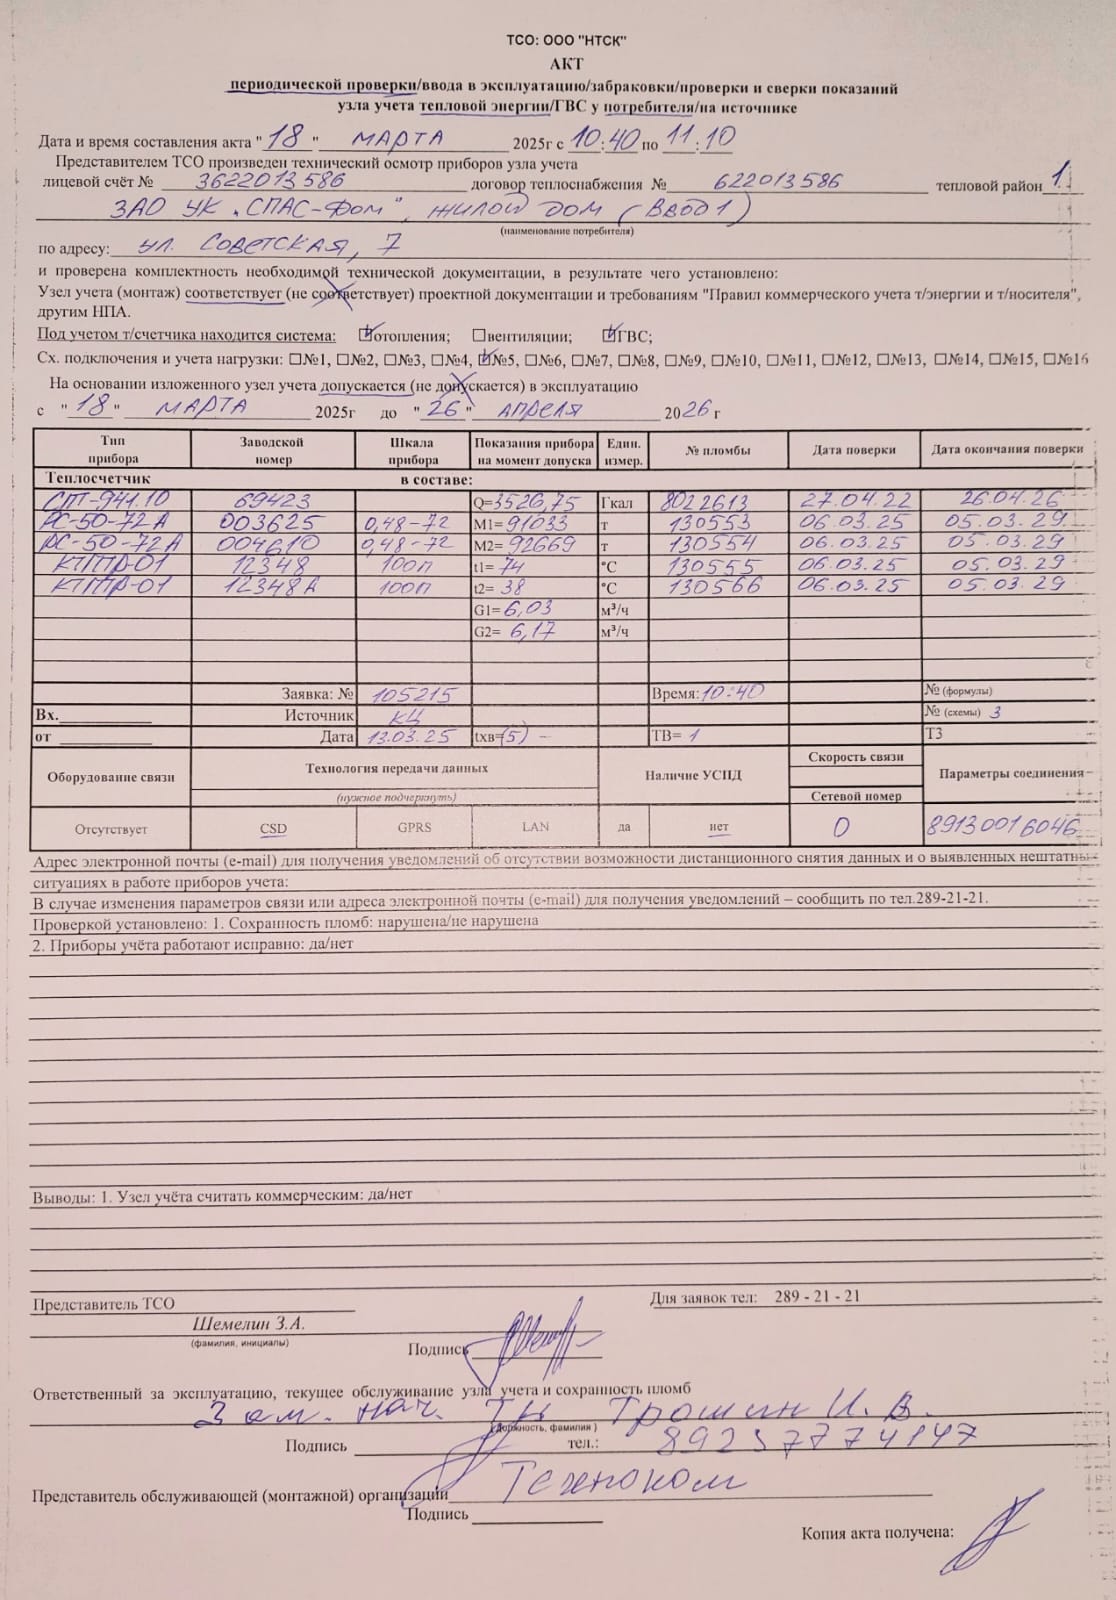 ТСО: ООО "НТСК"
АКТ
периодической проверки/ввода в эксплуатацию/забраковки/проверки и сверки показаний
узла учета тепловой энергии/ГВС у потребителя/на источнике
Дата и время составления акта "18" МАРТА 2025г с 10:40 по 11:10
Представителем ТСО произведен технический осмотр приборов узла учета
лицевой счёт № 3622013586 договор теплоснабжения № 622013586 тепловой район 1
ЗАО УК "СПАС-Дом", жилой дом (Ввод 1)
(наименование потребителя)
по адресу: ул. Советская, 7
и проверена комплектность необходимой технической документации, в результате чего установлено:
Узел учета (монтаж) соответствует (не соответствует) проектной документации и требованиям "Правил коммерческого учета т/энергии и т/носителя",
другим НПА.
Под учетом т/счетчика находится система: ☑отопления; ☐вентиляции; ☑ГВС;
Сх. подключения и учета нагрузки: ☐№1, ☐№2, ☐№3, ☐№4, ☑№5, ☐№6, ☐№7, ☐№8, ☐№9, ☐№10, ☐№11, ☐№12, ☐№13, ☐№14, ☐№15, ☐№16
На основании изложенного узел учета допускается (не допускается) в эксплуатацию
с "18" МАРТА 2025г до "26" АПРЕЛЯ 2026 г
Тип прибора Заводской номер Шкала прибора Показания прибора на момент допуска Един. измер. № пломбы Дата поверки Дата окончания поверки
Теплосчетчик в составе:
СПТ-941.10 69423 Q=3526,75 Гкал 8022613 27.04.22 26.04.26
РС-50-72А 003625 0,48-72 М1=91033 т 130553 06.03.25 05.03.29
РС-50-72А 004610 0,48-72 М2=92669 т 130554 06.03.25 05.03.29
КТПТР-01 12348 100П t1=74 °С 130555 06.03.25 05.03.29
КТПТР-01 12348А 100П t2=38 °С 130566 06.03.25 05.03.29
G1=6,03 м³/ч
G2=6,17 м³/ч
Заявка: № 105215 Время: 10:40 № (формулы)
Вх. Источник КЦ № (схемы) 3
от Дата 13.03.25 tхв=(5) – ТВ= 1 Т3
Оборудование связи Технология передачи данных Наличие УСПД Скорость связи Параметры соединения
(нужное подчеркнуть) Сетевой номер
Отсутствует CSD GPRS LAN да нет 0 89130016046
Адрес электронной почты (e-mail) для получения уведомлений об отсутствии возможности дистанционного снятия данных и о выявленных нештатны
ситуациях в работе приборов учета:
В случае изменения параметров связи или адреса электронной почты (e-mail) для получения уведомлений – сообщить по тел.289-21-21.
Проверкой установлено: 1. Сохранность пломб: нарушена/не нарушена
2. Приборы учёта работают исправно: да/нет
Выводы: 1. Узел учёта считать коммерческим: да/нет
Представитель ТСО Для заявок тел: 289 - 21 - 21
Шемелин З.А.
(фамилия, инициалы)
Подпись
Ответственный за эксплуатацию, текущее обслуживание узла учета и сохранность пломб
Зам. нач. Трошин И.В.
(должность, фамилия)
Подпись тел.: 89237774147
Представитель обслуживающей (монтажной) организации Техноком
Подпись
Копия акта получена: